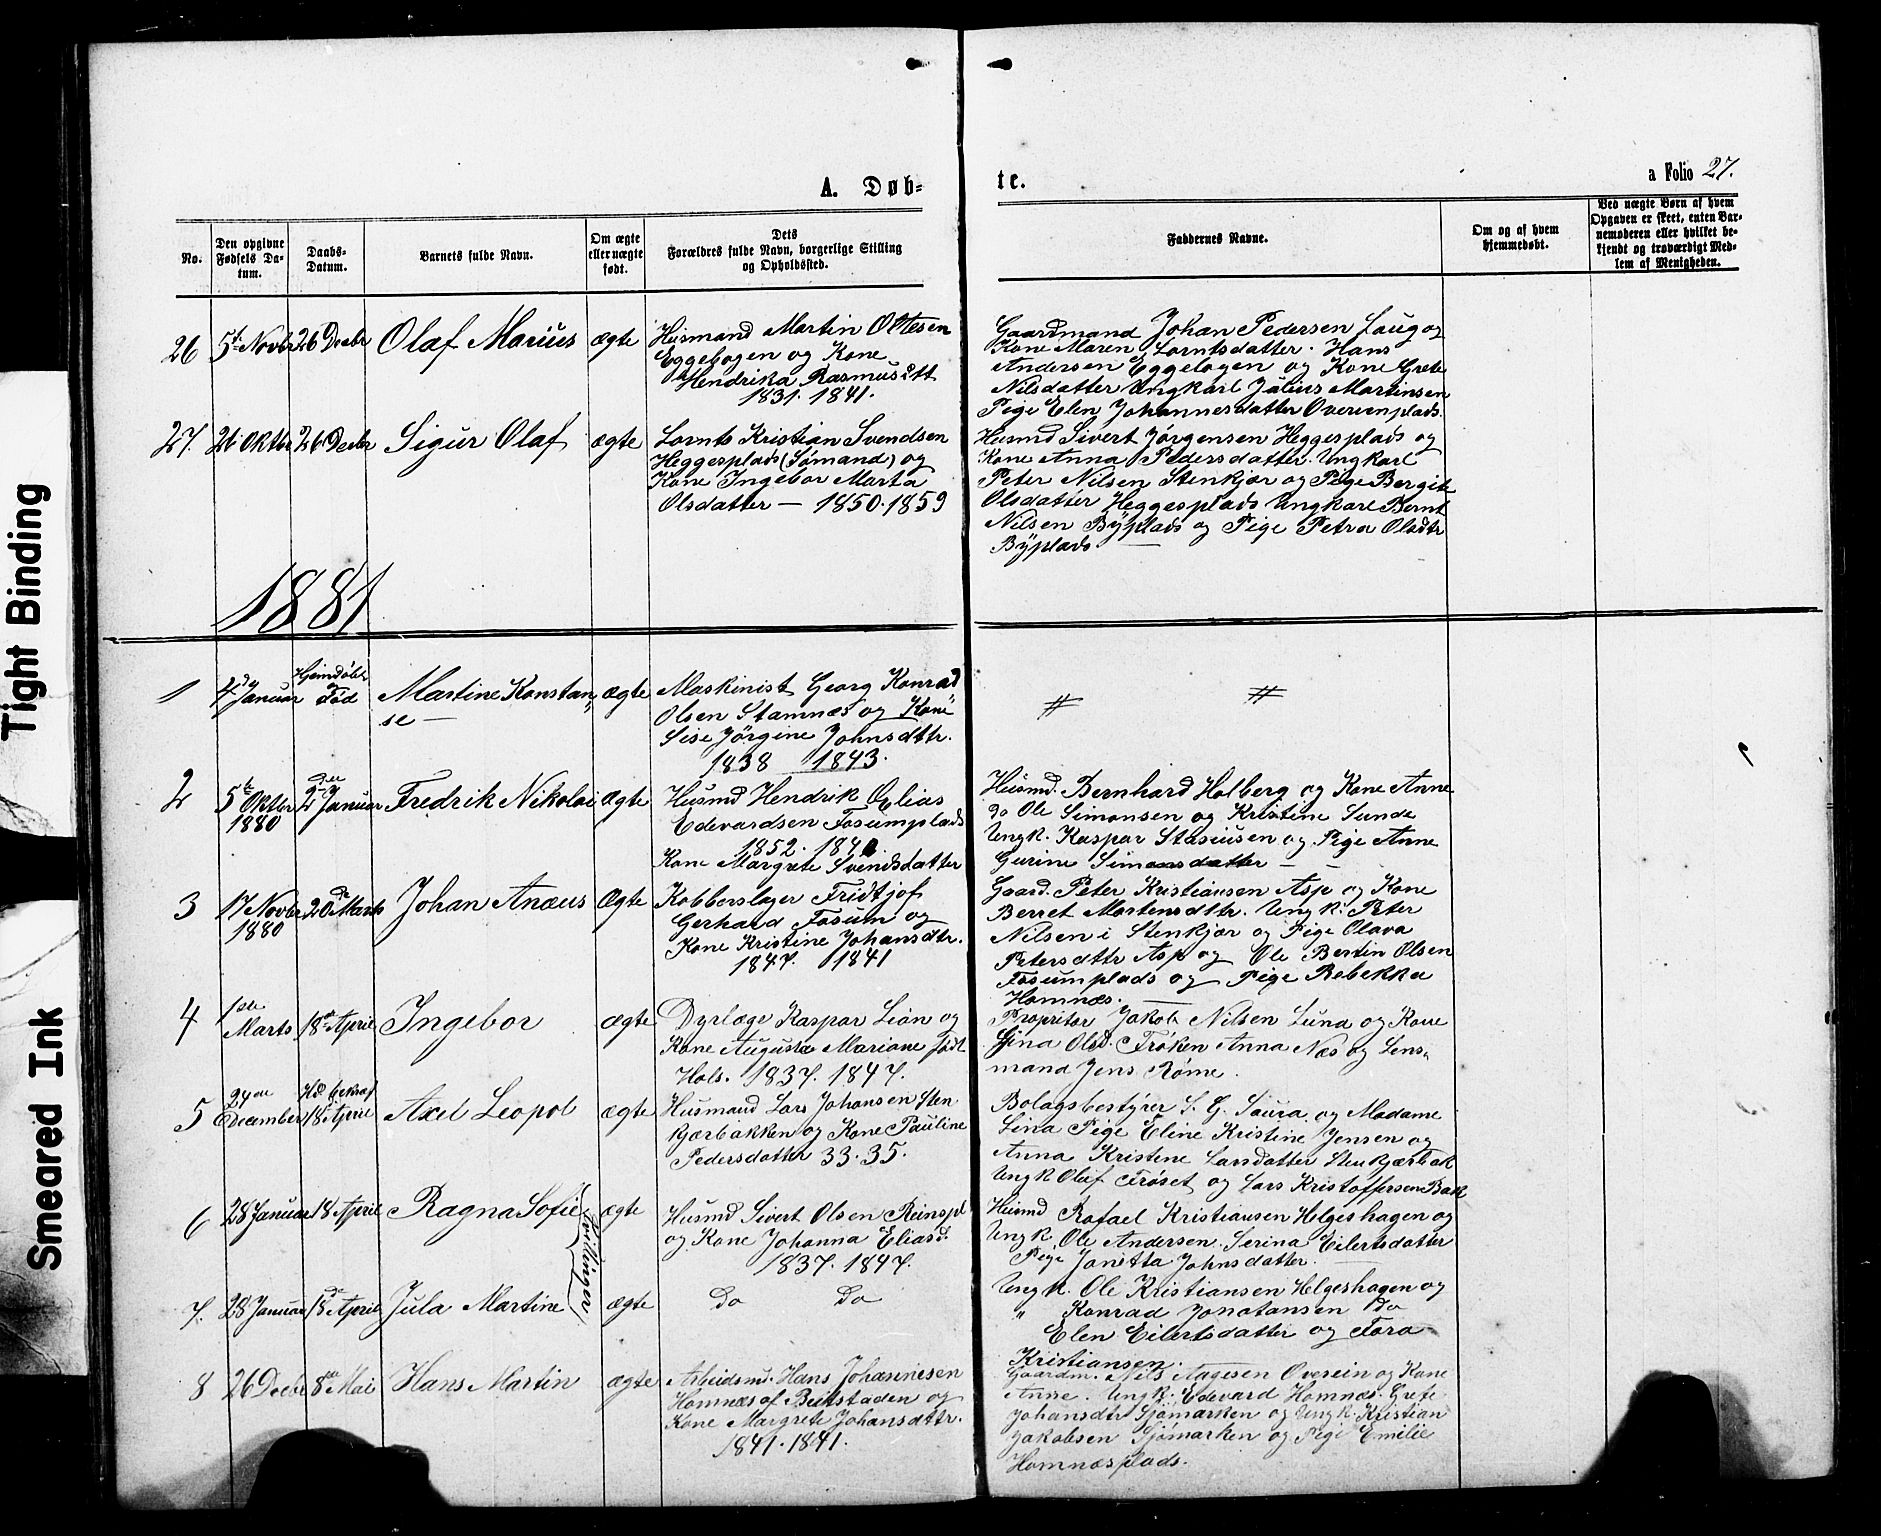 Tight Binding
Smeared Ink
A. Døb=
te.
a Folio 27.
No.
Den opgivne
Fødsels Da-
tum.
Daabs-
Datum.
Barnets fulde Navn.
Om ægte
eller uægte
født.
Dets
Forældres fulde Navn, borgerlige Stilling
og Opholdssted.
Faddernes Navne.
Om og af hvem
hjemmedøbt.
Ved uægte Børn af hvem
Opgaven er skeet, enten Bar-
nemoderen eller hvilket be-
kjendt og troværdigt Med-
lem af Menigheden.
26 5te Novbr 26 Decbr Olaf Marius ægte
Husmand Martin Oltesen
Eggebogen og Kone
Hendrika Rasmusdtt
1831. 1841.
Gaardmand Johan Pedersen Laug og
Kone Maren Lorntsdatter. Hans
Andersen Eggebogen og Kone Grete
Nilsdatter Ungkarl Julius Martinsen
Pige Elen Johannesdatter Overienplads.
27. 26 Oktbr 26 Decbr Sigur Olaf ægte
Lornts Kristian Svendsen
Heggesplads (Sømand) og
Kone Ingebor Marta
Olsdatter — 1850. 1859
Husmd Sivert Jørgensen Heggesplads og
Kone Anna Pedersdatter. Ungkarl
Peter Nilsen Stenkjær og Pige Bergite
Olsdatter Heggesplads Ungkarl Bernt
Nilsen Byplads og Pige Petra Olsdtr
Byplads.
1881
1 4de Januar Hjemdøbt og Død Martine Konstan„
se —
ægte
Maskinist Georg Konrad
Olsen Stamnæs og Kone
Sise Jørgine Johnsdttr.
1838 1843.
# #
2 5te Oktbr
1880
2den Januar Fredrik Nikolai ægte
Husmd Hendrik Oelias
Edevardsen Fosumplads
1852.
Kone Margrete Svendsdatter
Husmd. Bernhard Holberg og Kone Anne
Do Ole Simonsen og Kristine Sunde
Ungk. Kaspar Stasiusen og Pige Anne
Gurine Simonsdatter — —
3 17 Novbr
1880
20de Marts Johan Anæus Ægte
Kobberslager Fridtjof
Gerhard Fosum og
Kone Kristine Johansdtr.
1847. 1841
Gaard. Peter Kristiansen Asp og Kone
Berret Mortensdtr. Ungk. Peter
Nilsen i Stenkjær og Pige Olava
Petersdttr Asp og Ole Bertin Olsen
Fosumplads og Pige Rebekka
Homnæs.
4 1ste
Marts
18de Aprie Ingebor ægte
Dyrlæge Kaspar Lian og
Kone Augusta Mariane født
Hols. 1837. 1847.
Propritær Jakob Nilsen Lund og Kone
Gina Olsd. Frøken Anna Næs og Lens„
mand Jens Rømo.
5 24de
December
Hd bekræf
18de Aprie Axel Leopol ægte
Husmand Lars Johansen Sten
kjærbakken og Kone Pauline
Pedersdatter 33. 35.
Bolagsbestyrer S. G. Saura og Madame
Lina Pige Eline Kristine Jensen og
Anna Kristene Larsdatter Stenkjærbak
Ungk Oluf Frøset og Lars Kristoffersen Bak
6 28 Januar 18 Aprie Ragna Sofie ægte
Tvillinger
Husmd Sivert Olsen Reinspl
og Kone Johanna Eliasd.
1837. 1847.
Husmd Rafael Kristiansen Helgeshagen og
Ungk Ole Andersen. Serina Eilertsdatter
Pige Janetta Johnsdatter.
7. 28 Januar 18de Aprie Jula Martine ægte
do do
Ungk. Ole Kristiansen Helgeshagen og
„ Konrad Jonatansen Do
Elen Eilertsdatter og Fara
Kristiansen.
8 26 Decbr 8de Mai Hans Martin ægte
Arbeidsmd. Hans Johannesen
Homnæs af Beitstaden og
Kone Margrete Johansdttr.
1841. 1841.
Gaardm. Nils Aagesen Overein og Kone
Anne. Ungk. Edevard Homnæs. Grete
Johansdtr Sjømarken og Ungk. Kristian
Jakobsen Sjømarken og Pige Emilie
Homnæsplads.